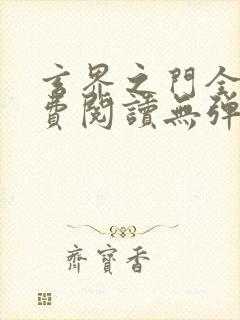 玄界之門全
費閱讀無彈
齊寶香